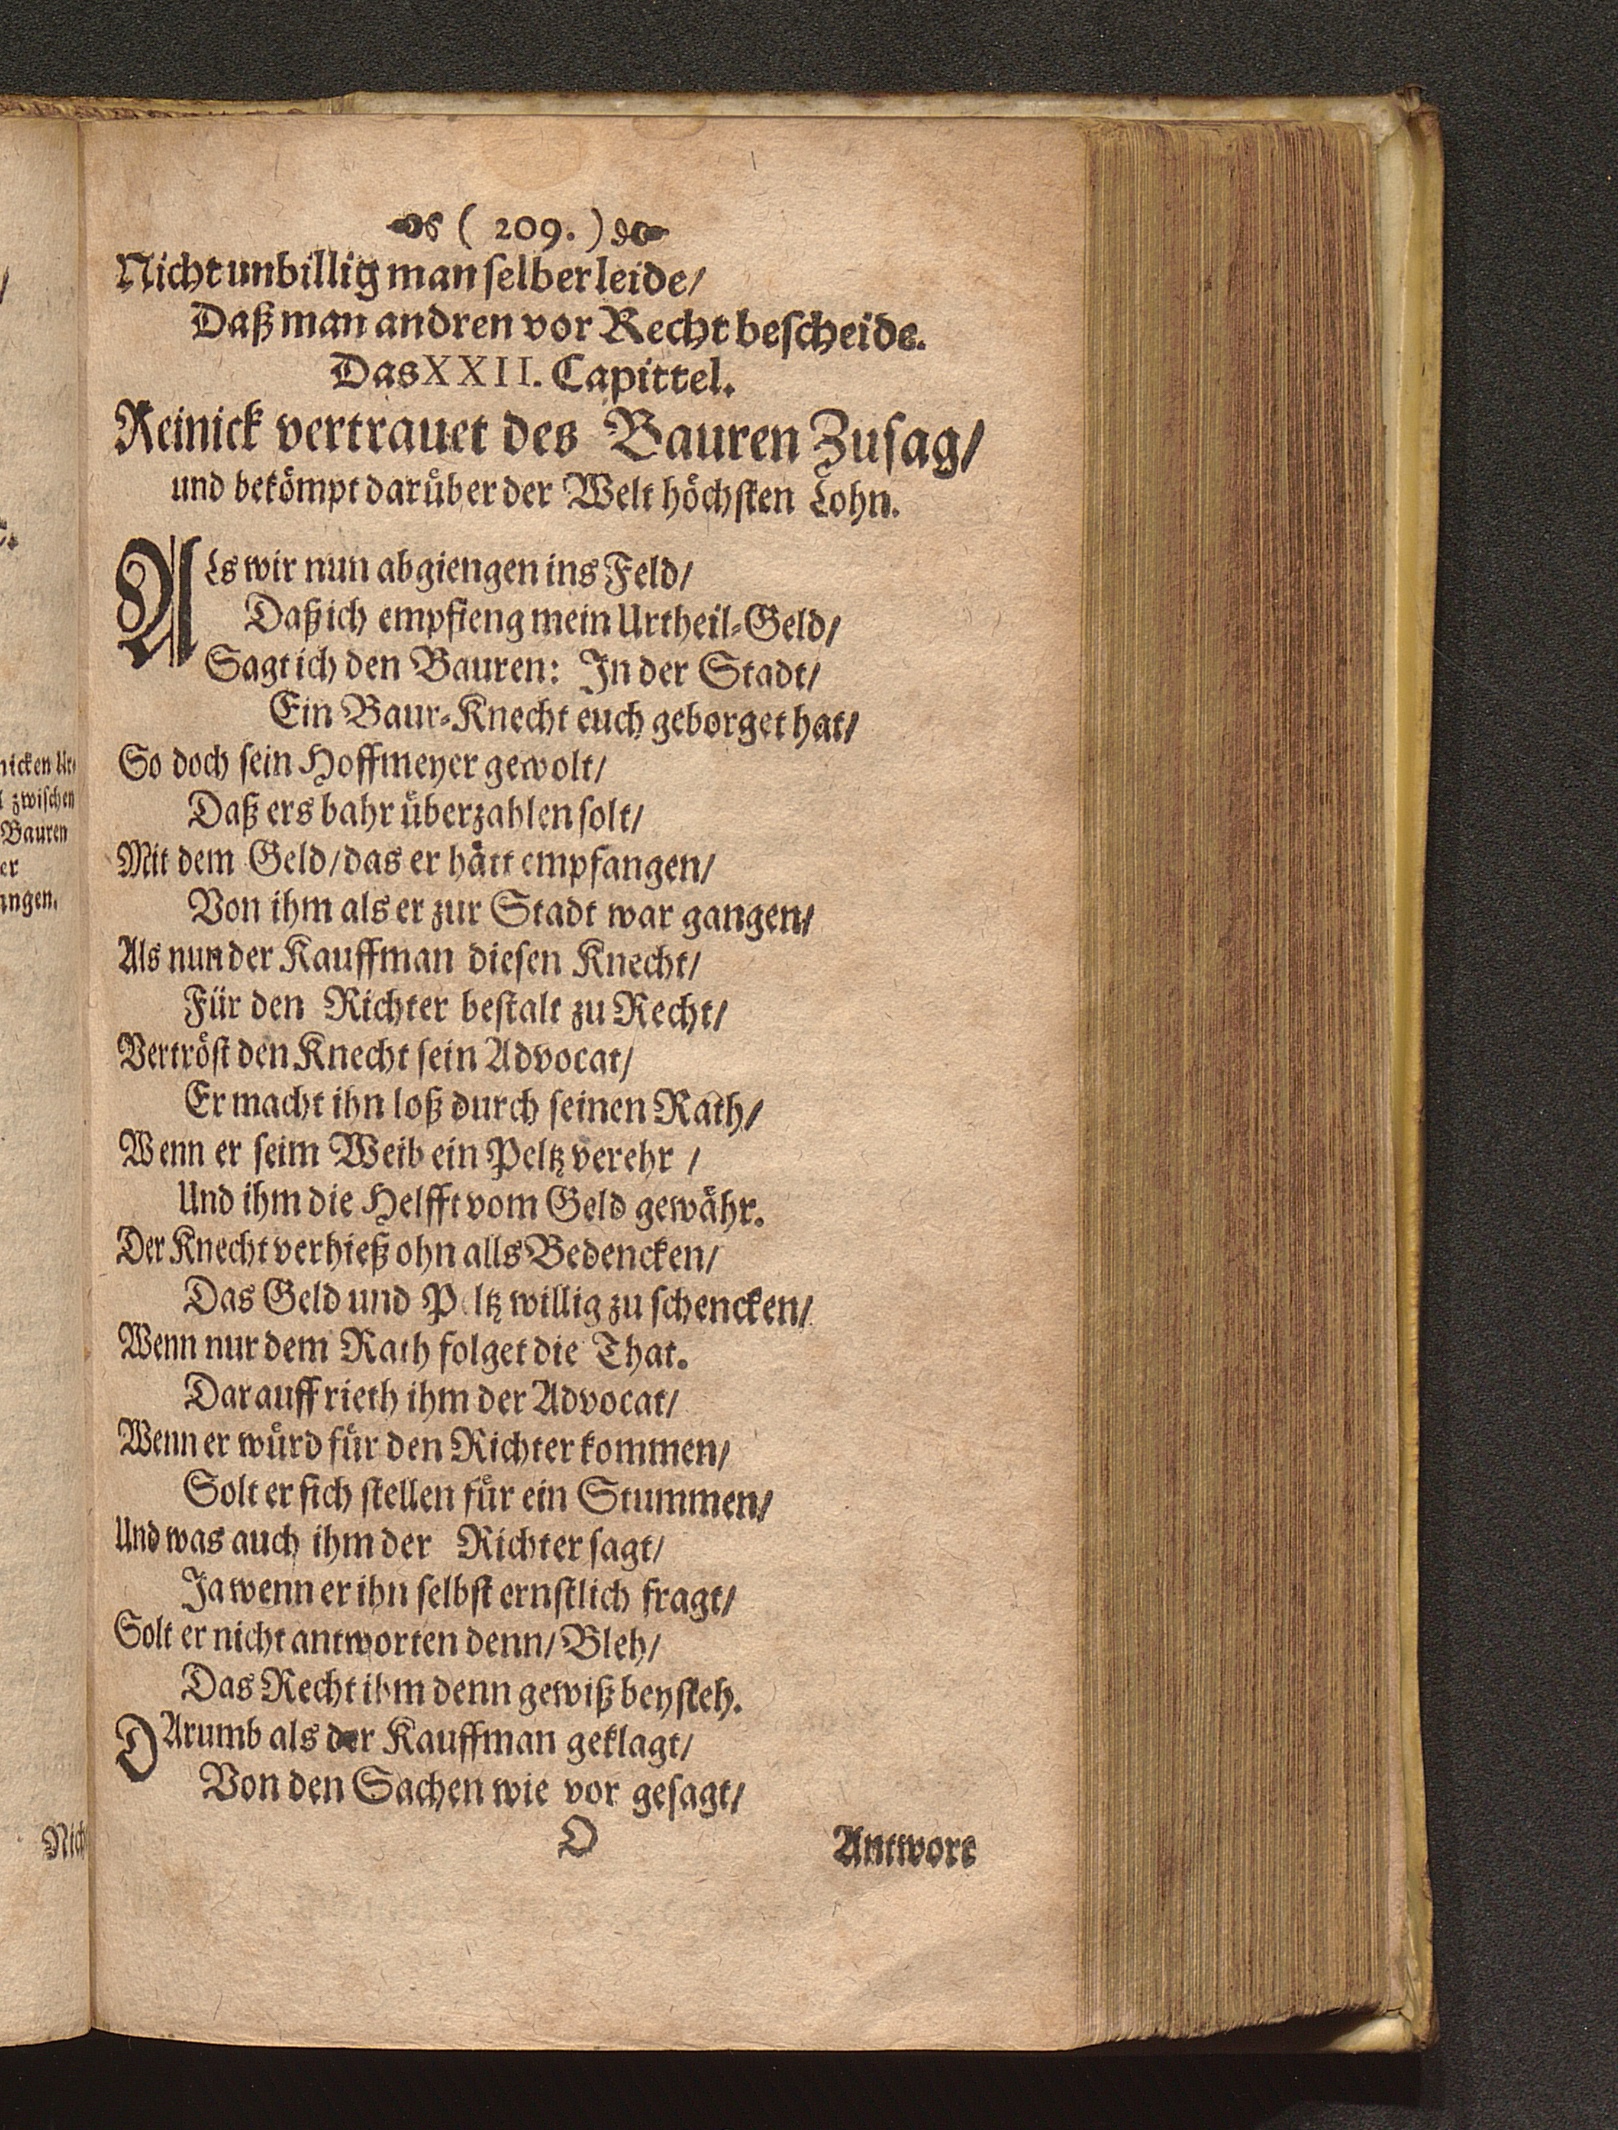 ( 209. )
Nicht unbillig man ſelber leide/
Daß man andren vor Recht beſcheide.
Das XXII. Capittel.
Reinick vertrauet des Bauren Zuſag/
und bekömpt darüber der Welt höchſten Lohn.
ALs wir nun abgiengen ins Feld/
Daß ich empfieng mein Urtheil-Geld/
Sagt ich den Bauren: In der Stadt/
Ein Baur-Knecht euch geborget hat/
So doch ſein Hoffmeyer gewolt/
Daß ers bahr überzahlen ſolt/
Mit dem Geld/ das er hätt empfangen/
Von ihm als er zur Stadt war gangen/
Als nun der Kauffman dieſen Knecht/
Für den Richter beſtalt zu Recht/
Vertröſt den Knecht ſein Advocat/
Er macht ihn loß durch ſeinen Rath/
Wenn er ſeim Weib ein Peltz verehr /
Und ihm die Helfft vom Geld gewähr.
Der Knecht verhieß ohn alls Bedencken/
Das Geld und Peltz willig zu ſchencken/
Wenn nur dem Rath folget die That.
Darauff rieth ihm der Advocat/
Wenn er würd für den Richter kommen/
Solt er ſich ſtellen für ein Stummen/
Und was auch ihm der Richter ſagt/
Ja wenn er ihn ſelbſt ernſtlich fragt/
Solt er nicht antworten denn/ Bleh/
Das Recht ihm denn gewiß beyſteh.
DArumb als der Kauffman geklagt/
Von den Sachen wie vor geſagt/
O
Antwort
zwiſchen
Bauren
er
angen.
Nich